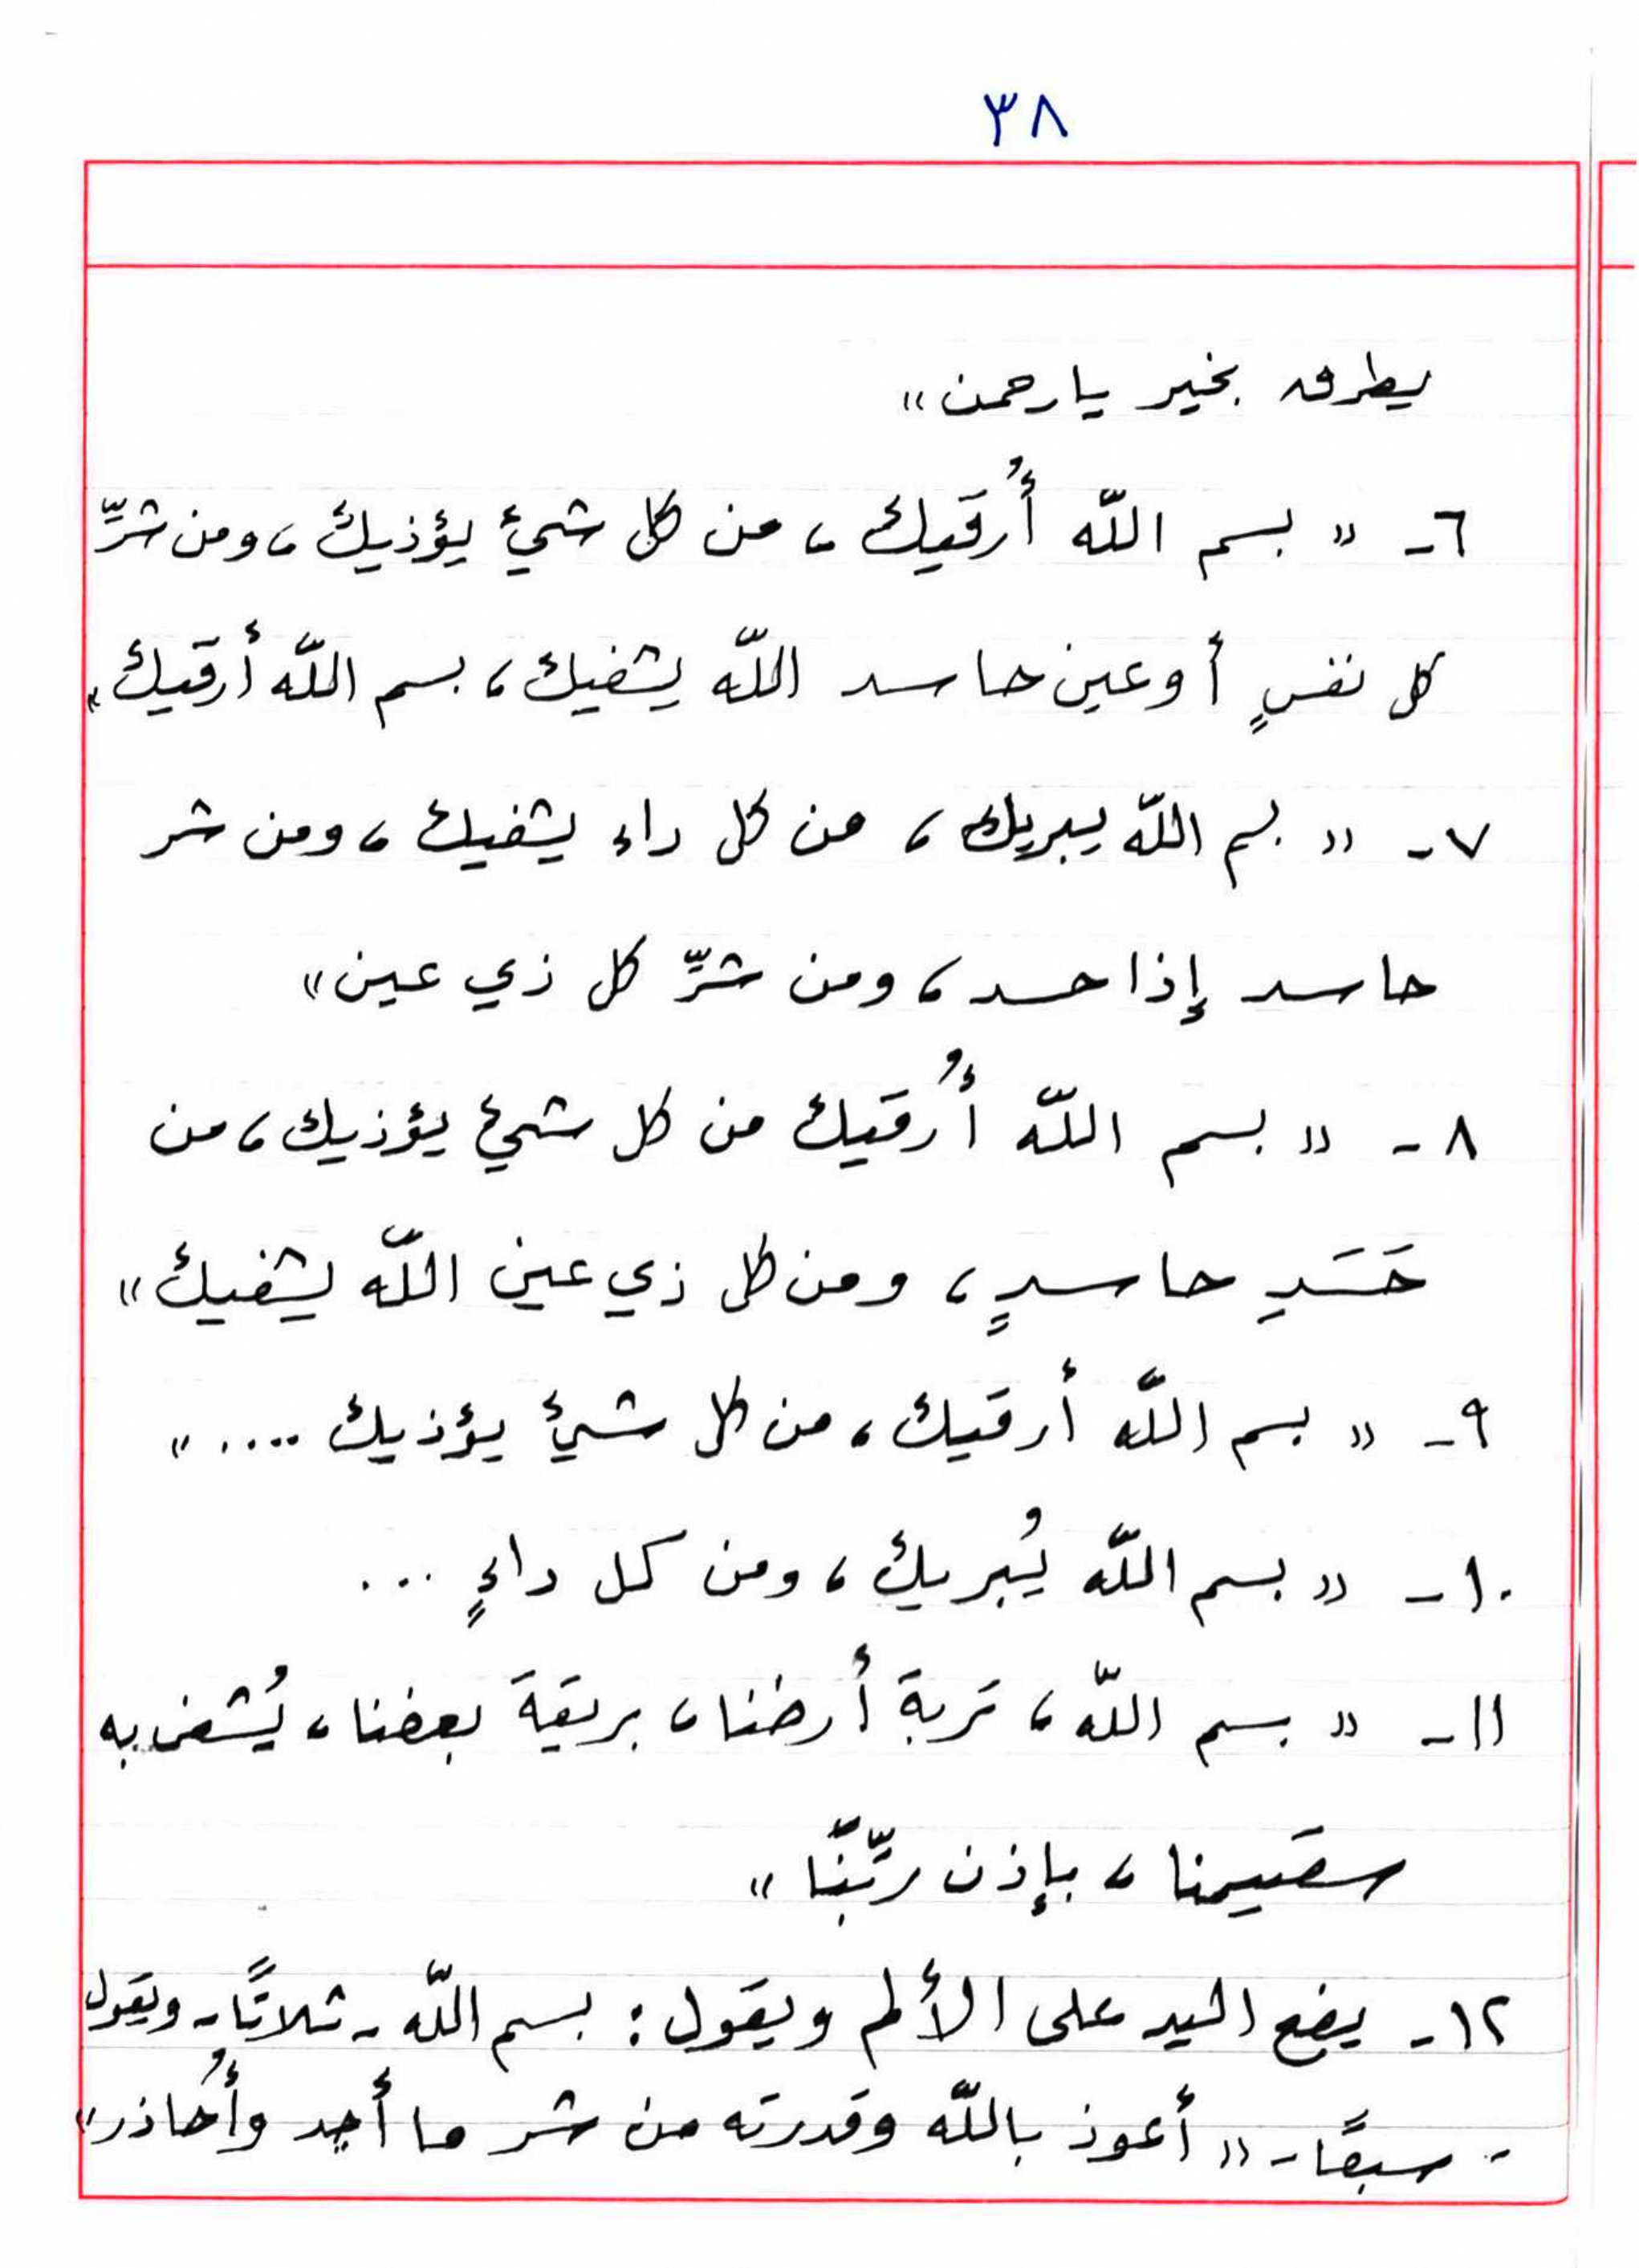 ٣٨
يطرق بخير يا رحمن»
٦- «بسم اللّه أُرقيك، من كل شيءٍ يؤذيك، ومن شرِّ
كل نفسٍ أو عين حاسد اللّه يشفيك، بسم اللّه أرقيك»
٧- «بسم اللّه يبريك، من كل داء يشفيك، ومن شر
حاسد إذا حسد، ومن شرِّ كل ذي عين»
٨- «بسم اللّه أُرقيك من كل شيء يؤذيك، من
حَسَدِ حاسدٍ، ومن كل ذي عين اللّه يشفيك»
٩- «بسم اللّه أرقيك، من كل شيء يؤذيك ....»
١٠- «بسم اللّه يُبريك، ومن كل داءٍ ...
١١- «بسم اللّه، تربة أرضنا، بريقة بعضنا، يُشفى به
سقيمنا، بإذن ربِّنّا»
١٢- يضع اليد على الألم ويقول: بسم اللّه - ثلاثًا - ويقول
- سبعًا - «أعوذ باللّه وقدرته من شر ما أجد وأُحاذر»